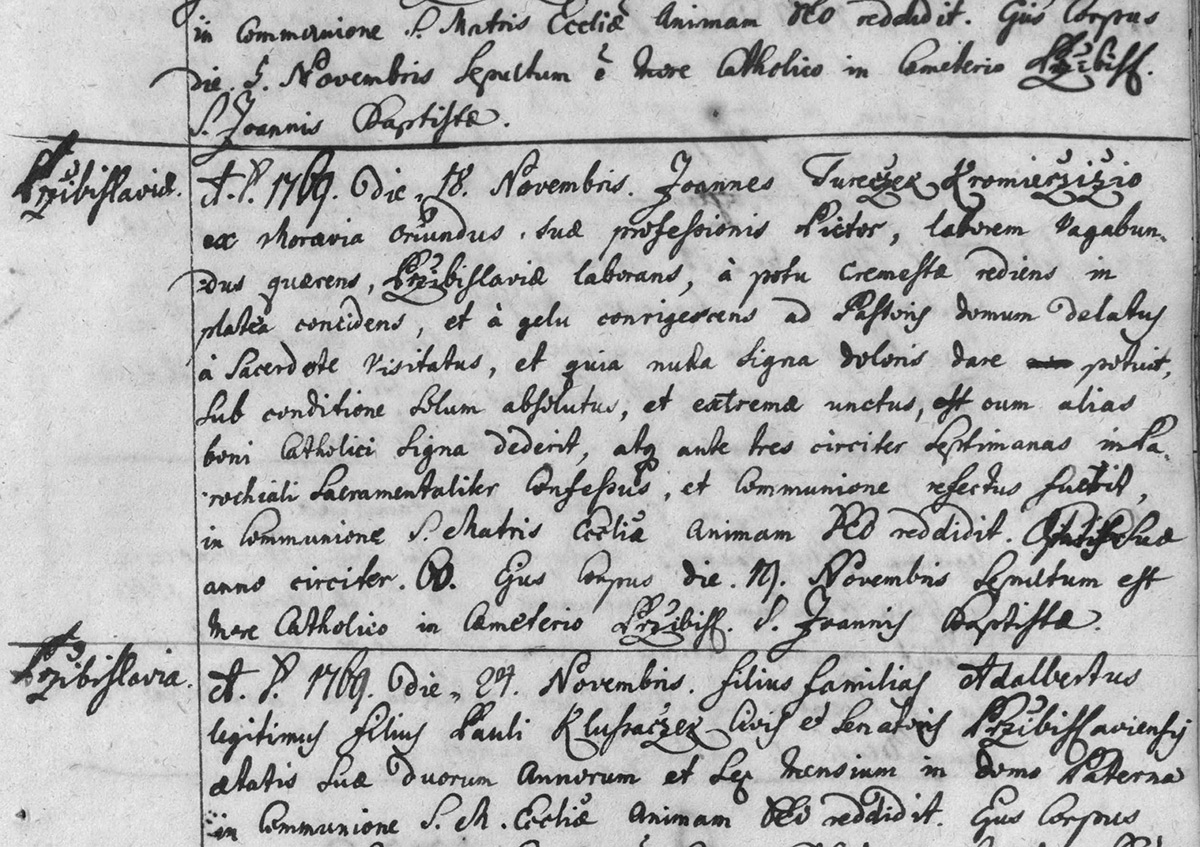 in Communione S. Matris Eccliæ Animam DEO reddidit. Ejus Corpus
die. 5. Novembris Sepultum ẽ more Catholico in Cæmeterio Przibisl.
S. Joannis Baptistæ.
Przibislaviæ. A. P. 1769. Die „ 18. Novembris. Joannes Tureczek Kromierzizio
ex Moravia oriundus, suæ professionis Pictor, laborem vagabun-
dus quærens, Przibislaviæ laborans, à potu Cremestæ rediens in
platea concidens, et à gelu conrigescens ad Pastoris domum delatus
à Sacerdote visitatus, et quia nulla signa doloris dare potuit,
sub conditione solum absolutus, et extremæ unctus, est cum alias
boni Catholici signa dederit, atq ante tres circiter septimanas in Pa-
rochiali Sacramentaliter Confessus, et Communione refectus fuerit,
in Communione S. Matris Eccliæ Animam DEO reddidit. Ætatis suæ
anno circiter. 60. Ejus Corpus die. 19. Novembris Sepultum est
more Catholico in Cæmeterio Przibisl. S. Joannis Baptistæ.
Przibislavia. A. P. 1769. Die „ 24. Novembris. filius familias Adalbertus
legitimus filius Pauli Klussaczek Civis et Senatoris Przibislaviensis
ætatis suæ duorum Annorum et sex mensium in domo Paterna
in Communione S. M. Eccliæ Animam DEO reddidit. Ejus Corpus